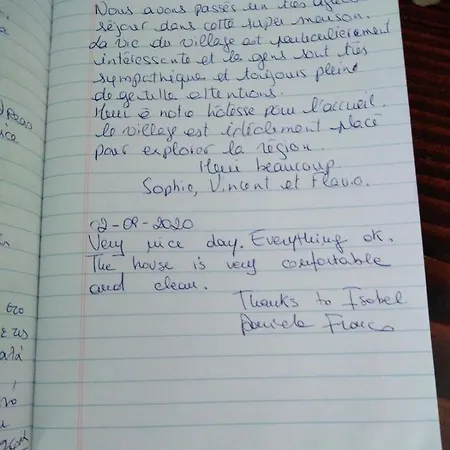 Nous avons passés un très
séjour dans cette super maison.
La vie du village est particulièrement
intéressante et les gens sont très
sympathique et toujours plein
de gentille attentions.
Merci à notre hôtesse pour l'accueil.
Le village est idéalement placé
pour explorer la région.
Merci beaucoup
Sophie, Vincent et Flavio.
12-09-2020
Very nice day. Everything ok.
The house is very comfortable
and clean.
Thanks to Isabel
Daniela
ετο